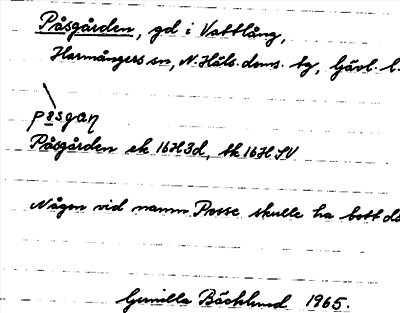 Påsgården, gd i Vattlång,
Harmångers sn, N. Häls. doms. tg, Gävl. l.
påsgaɳ
Påsgården ek 16H3d, tk 16H SV
Någon vid namn Posse skulle ha bott dä
Gunilla Bäcklund 1965.